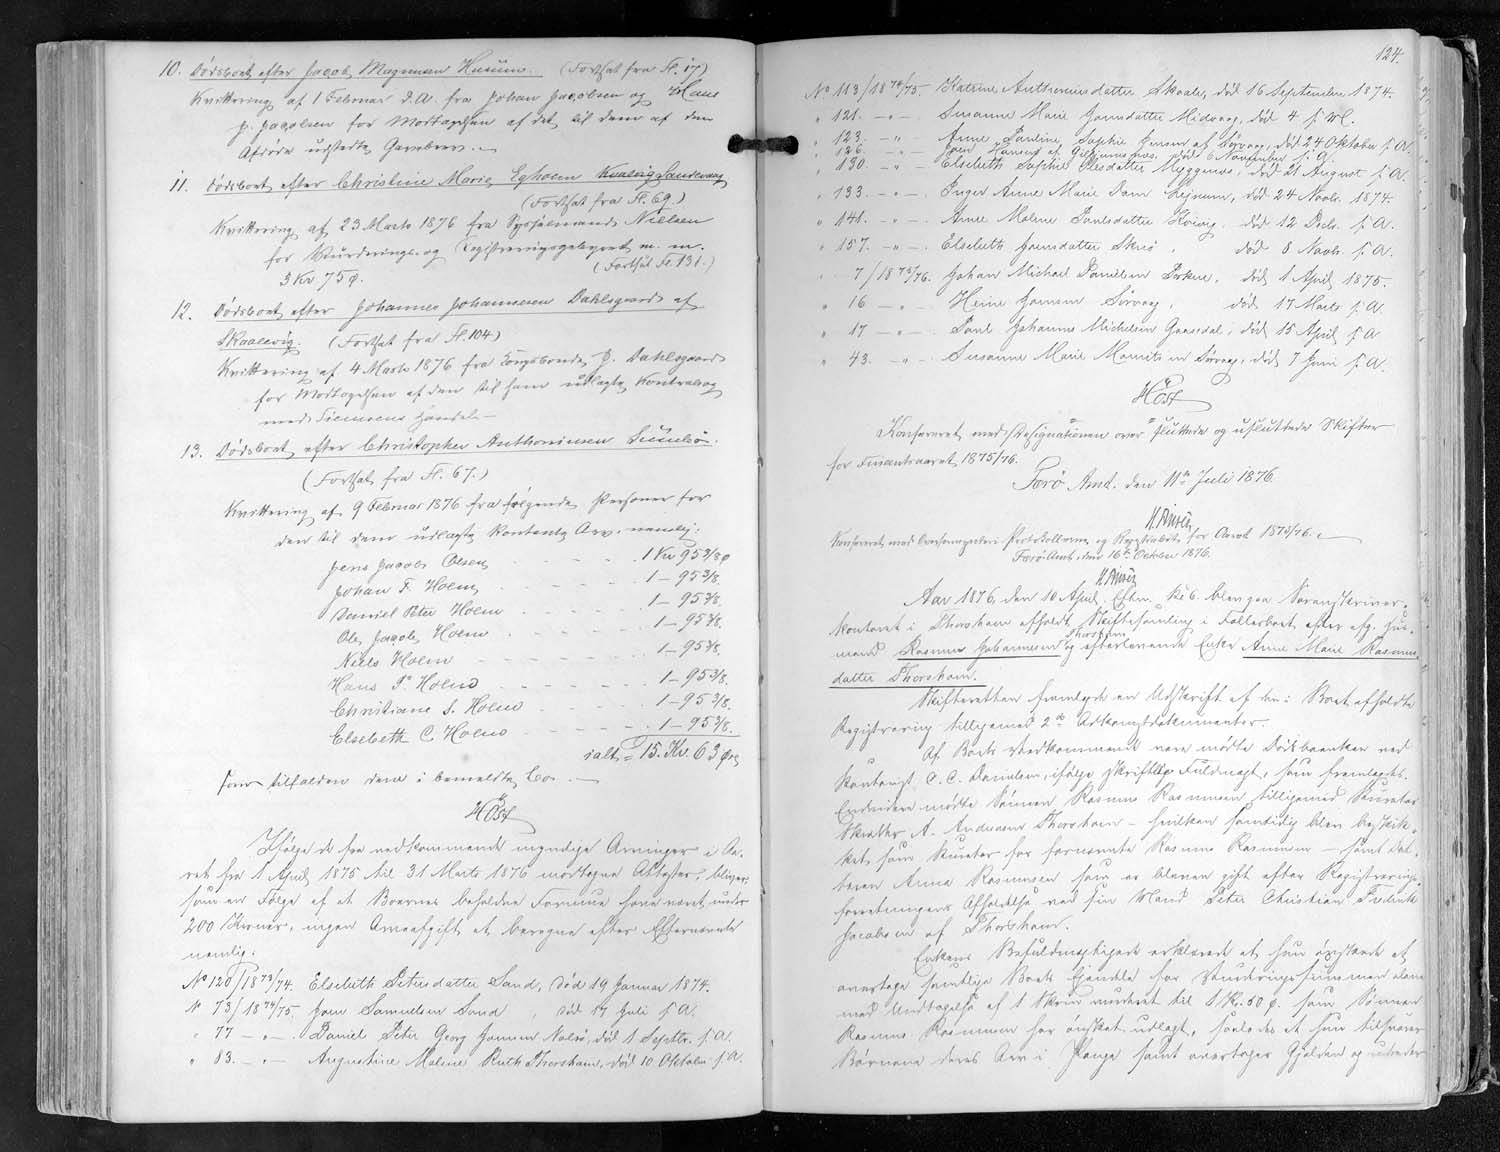 10. Dødsboet efter Jacob Magnussen Husum. (Fortsat fra Fl. 17)
Kvittering af 1 Februar d. A. fra Johan Jacobsen og Hans
P. Jacobsen for Modtagelsen af det til dem af den
Afdøde udstedte Gavebrev.
11. Dødsboet efter Christine Marie Egholm Kvalvig Sandevaag
(Fortsat fra Fl. 69.)
Kvittering af 23 Marts 1876 fra Sysselmand Nielsen
for Vurderings- og Registreringsgebyret m. m.
3 Kr 75 Ø. (Fortsat Fl. 131.)
12. Dødsboet efter Johannes Johannesen Dahlsgaard af
Skaalevig. (Fortsat fra Fl. 104)
Kvittering af 4 Marts 1876 fra Kongsbonde P. Dahlsgaard
for Modtagelsen af den til ham udlagte Kontrabog
med Siemsens Handel.
13. Dødsboet efter Christopher Anthoniusen
(Fortsat fra Fl. 67.)
Kvittering af 9 Februar 1876 fra følgende Personer for
den til dem udlagte kontante Arv, nemlig:
Jens Jacob Olsen - - - 1 Kr 95 3/8 Ø
Johan F. Holm - - - 1 - 95 3/8.
Daniel Peter Holm - - - 1 - 95 3/8.
Ole Jacob Holm - - - 1 - 95 3/8.
Niels Holm - - - 1 - 95 3/8.
Hans P. Holm - - - 1 - 95 3/8.
Christiane S. Holm - - - 1 - 95 3/8.
Elsebeth C. Holm - - - 1 - 95 3/8.
ialt = 15. Kr. 63 Øre
som tilfalden dem i bemeldte Bo.
Høst
Ifølge de fra vedkommende myndige Arvinger i Aa-
ret fra 1 April 1875 til 31 Marts 1876 modtagne Attester, bliver,
som en Følge af at Boernes beholdne Formue have været under
200 Kroner, ingen Arveafgift at beregne efter Efternævnte
nemlig:
No 120/1873/74. Elsebeth Petersdatter Sand, død 19 Januar 1874.
" 73/1874/75. Joen Samuelsen Sand, død 17 Juli f. A.
" 77 - " - Daniel Peter Georg Joensen Nolsø, død 1 Septbr. f. A.
" 83. - " - Augustine Malene Ruth Thorshavn, død 10 Oktober f. A.
124.
No 113/1874/75. Katrine Anthoniusdatter Skaale, død 16 September 1874.
" 121. - " - Susanne Marie Joensdatter Midvaag, død 4 f. M.
" 123. - " - Anne Pauline Sophie Jensen af Sørvaag, død 24 Oktober f. A.
" 126. - " - Joen Hansen af død 6 November f. A.
" 130. - " - Elsebeth Sophie Olesdatter Myggenæs, død 21 August f. A.
" 133. - " - Inger Anne Marie Dam død 24 Novbr. 1874.
" 141. - " - Anne Malene Poulsdatter død 12 Decbr. f. A.
" 157. - " - Elsebeth Joensdatter Skuø, død 8 Novbr. f. A.
" 7/1875/76. Johan Michael Danielsen død 1 April 1875.
" 16 - " - Heine Joensen Sørvaag, død 17 Marts f. A.
" 17 - " - Poul Johannes Michelsen Gaasedal, død 15 April f. A
" 43. - " - Susanne Marie Mouritsen Sørvaag, død 7 Juni f. A.
Høst
Konfereret med Designationen over sluttede og usluttede Skifter
for Finantsaaret 1875/76.
Færø Amt, den 11te Juli 1876.
H. Finsen
Konfereret med Protokollerne og Regnskabet for Aaret 1875/76.
Færø Amt, den 16de October 1876.
H. Finsen
Aar 1876, den 10 April, Eftm. Kl. 6. blev paa Sorenskriver-
kontoret i Thorshavn afholdt Skiftesamling i Fællesboet efter afg. Huus-
mand Rasmus Johannesen Thorshavn og efterlevende Enke Anne Marie Rasmus-
datter Thorshavn.
Skifteretten fremlagde en Udskrift af den i Boet afholdte
Registrering tilligemed 2de Adkomstdokumenter.
Af Boets Vedkommende vare mødte Boets Enke ved
C. C. Danielsen, ifølge skriftlig Fuldmagt, som fremlagdes.
Endvidere mødte Sønnen Rasmus Rasmussen tilligemed Kurator
A. Andersen Thorshavn - hvilken samtidig blev beskik-
ket som Kurator for fornævnte Rasmus Rasmussen - samt Dat-
teren Anna Rasmussen som er bleven gift efter Registrerings-
forretningens Afholdelse ved sin Mand Peter Christian Frederik
Jacobsen af Thorshavn.
Enkens Befuldmægtigede erklærede at hun ønskede at
overtage samtlige Boets Eiendele for Vurderingssummen alene
med Undtagelse af 1 Skrin vurderet til 1 Kr. 50 Ø. som Sønnen
Rasmus Rasmussen har ønsket udlagt, saaledes at hun tilsvarer
Børnene deres Arv i Penge samt overtager Gjælden og udreder